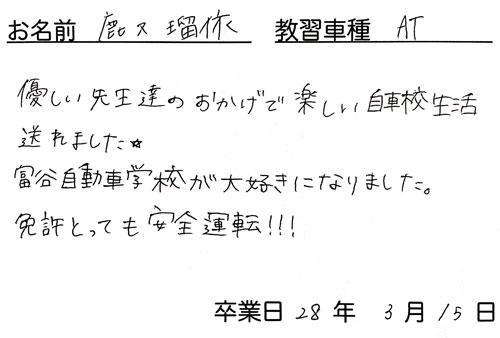 お名前 鹿又 瑠依 教習車種 AT
優しい先生達のおかげで楽しい自車校生活
送れました☆
富谷自動車学校が大好きになりました。
免許とっても安全運転!!!
卒業日 28 年 3 月 15 日